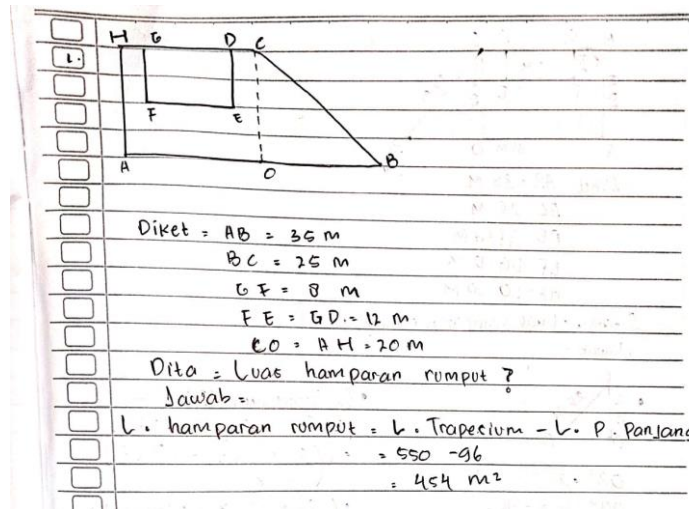 H G D C
1.
F E
A O B
Diket = AB = 35 m
BC = 25 m
GF = 8 m
FE = GD. = 12 m
CO = AH = 20 m
Dita = Luas hamparan rumput ?
Jawab =
L. hamparan rumput = L. Trapesium - L. P. Panjang
= 550 - 96
= 454 m²